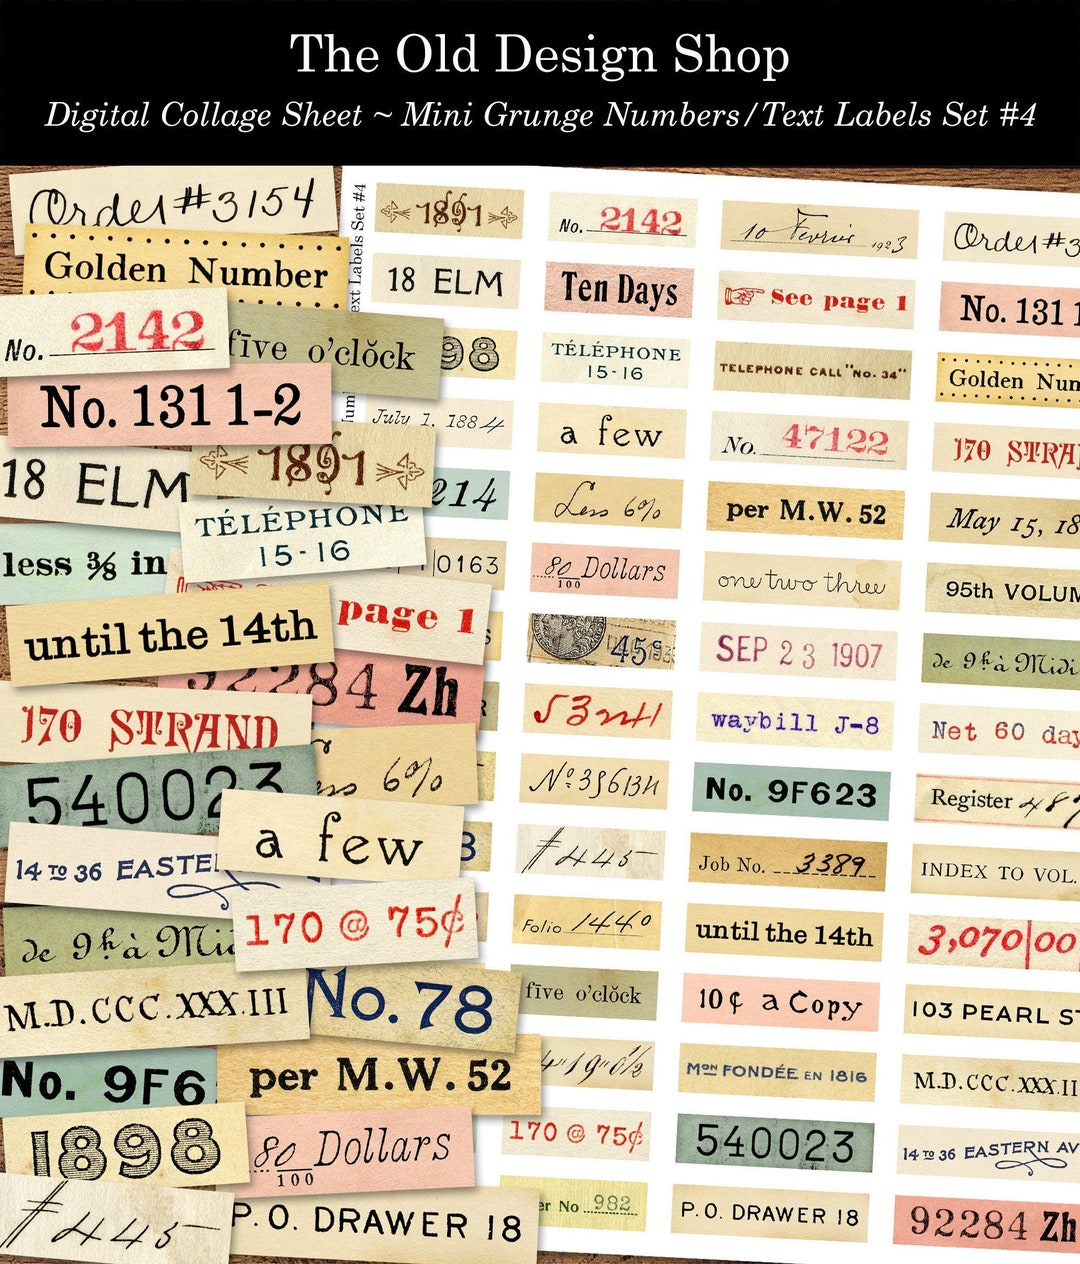 The Old Design Shop
Digital Collage Sheet ~ Mini Grunge Numbers/Text Labels Set #4
Order #3154
Golden Number
No. 2142
five o'clŏck
No. 131 1-2
18 ELM
1891
TÉLÉPHONE
15-16
less ⅜ in
page 1
until the 14th
92284 Zh
170 STRAND
6%
540023
a few
14 TO 36 EASTE
170 @ 75¢
de 9h à Mi
M.D.CCC.XXX.III
No. 78
No. 9F6
per M.W. 52
1898
80/100 Dollars
#445
P.O. DRAWER 18
ext Labels Set #4
1891
18 ELM
98
July 1, 1884
214
0163
No. 2142
Ten Days
TÉLÉPHONE
15-16
a few
Less 6%
80/100 Dollars
45c
53
No. 3
#445
Folio 1440
five o'clŏck
170 @ 75¢
er No 982
10 Fevrier 1923
See page 1
TELEPHONE CALL "No. 34"
No. 47122
per M.W. 52
one two three
SEP 23 1907
waybill J-8
No. 9F623
Job No. 3389
until the 14th
10¢ a Copy
MON FONDÉE EN 1816
540023
P.O. DRAWER 18
Order #3
No. 131 1
Golden Num
170 STRA
May 15, 18
95th VOLUM
de 9h à Midi
Net 60 day
Register 48
INDEX TO VOL.
3,070|00
103 PEARL ST
M.D.CCC.XXX.II
14 TO 36 EASTERN AV
92284 Zh